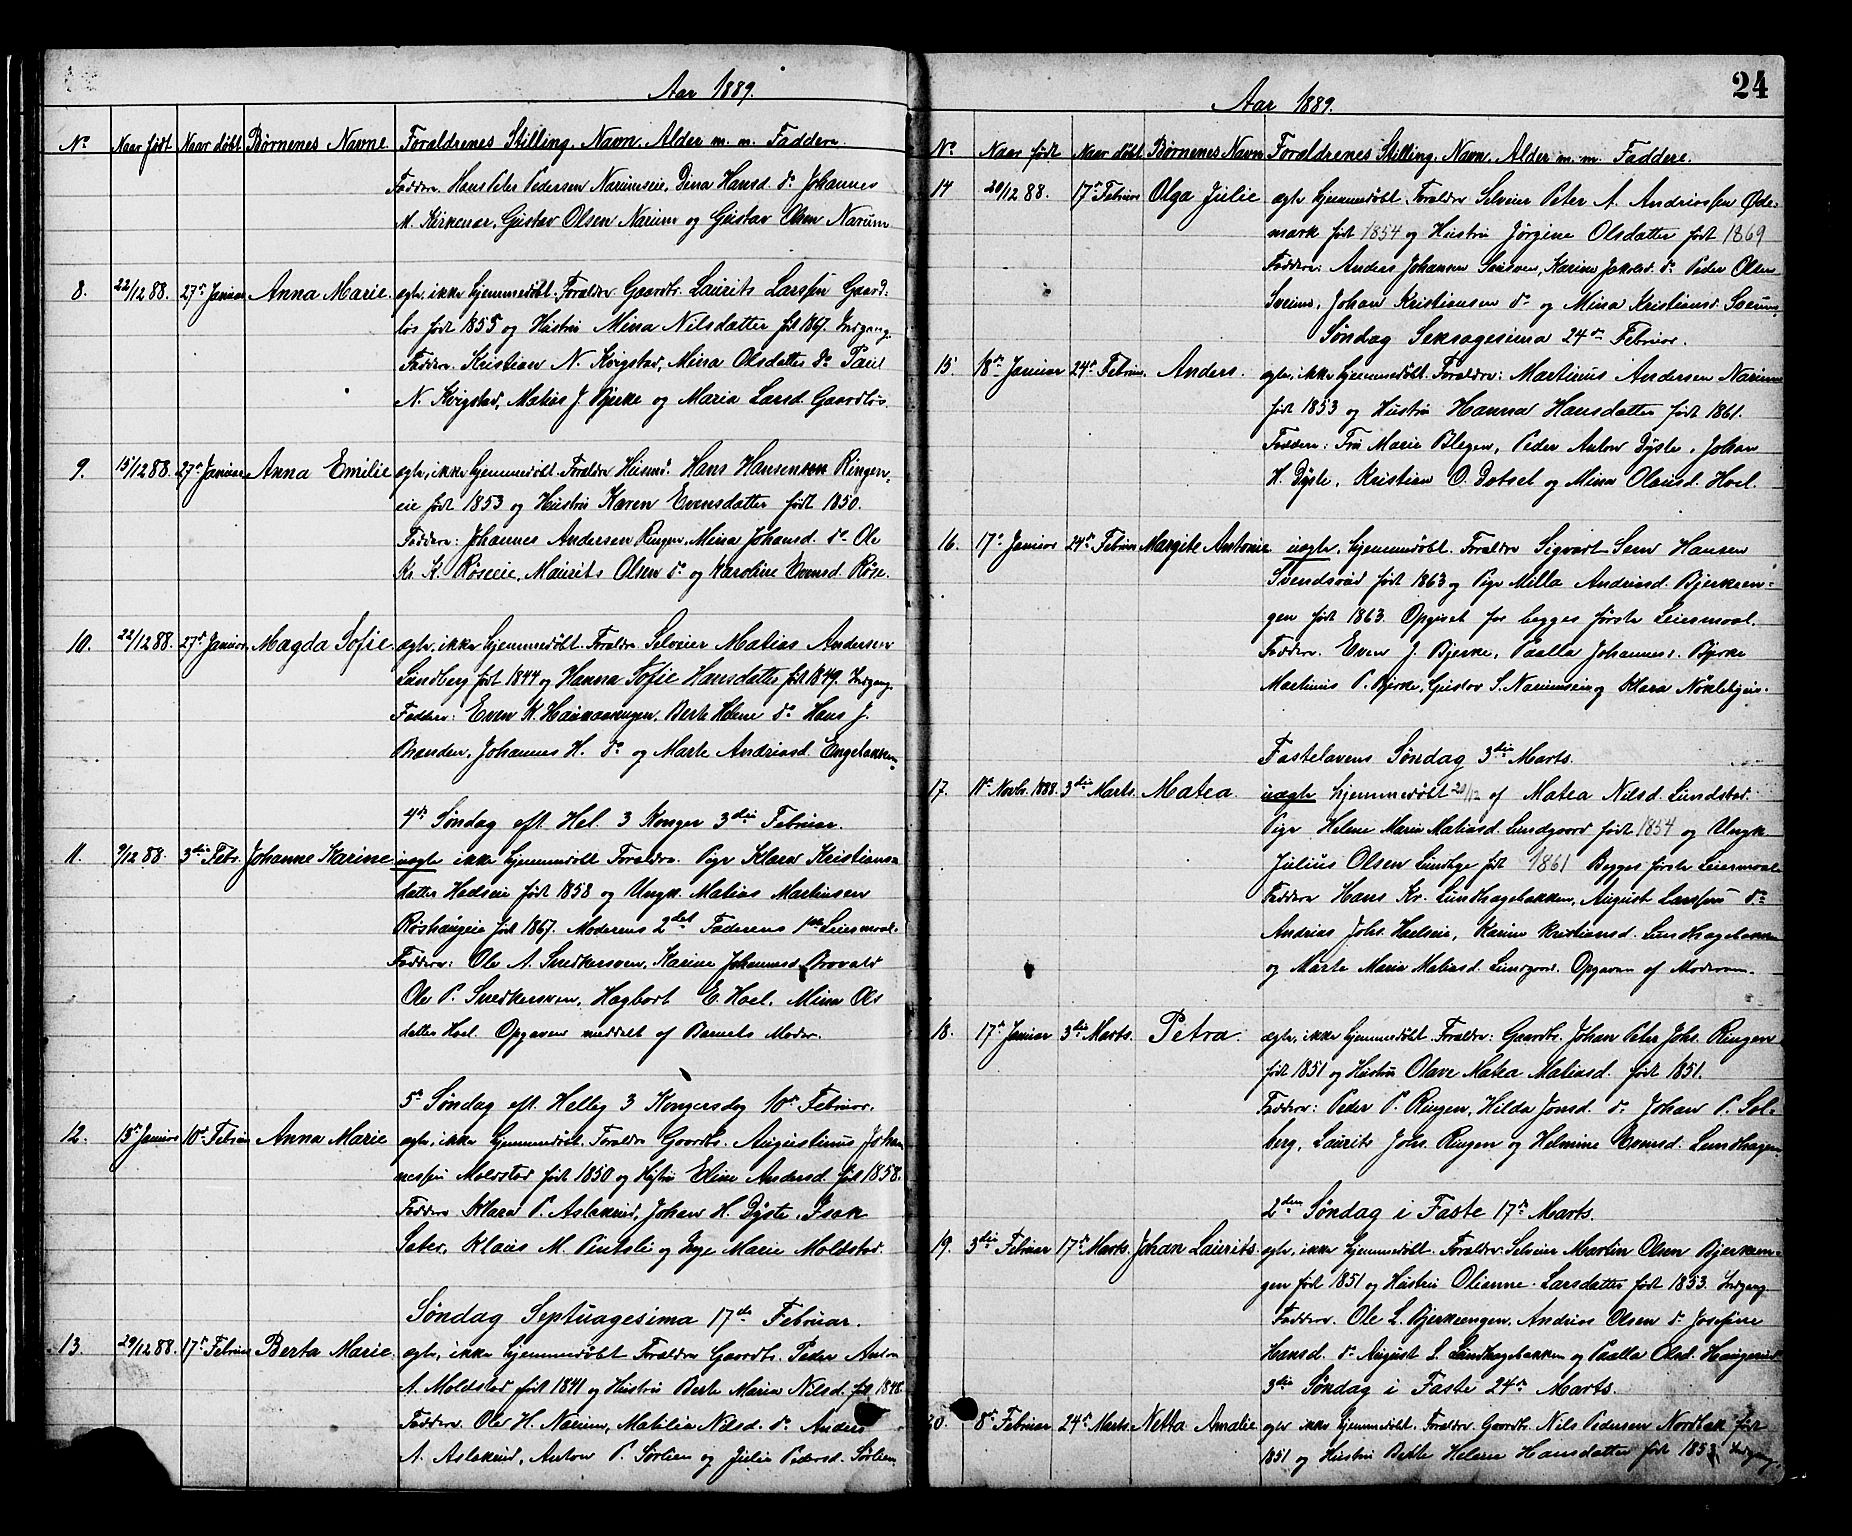 Aar 1889.
No Naar født Naar døbt Børnenes Navne Forældrenes Stilling, Navn, Alder m. m. Faddere.
Faddere. Hans Peter Pedersen Narumseie, Dina Hansd. do Johannes
M. Kirkenær, Gustav Olsen Narum og Gustav Olsen Narum
8. 22/12 88. 27de Januar Anna Marie. ægte, ikke hjemmedøbt. Forældre Gaardbr. Laurits Larssen Gaard-
løs født 1855 og Hustru Mina Nilsdatter født 1867. Indgang.
Faddere. Kristian N. Kvigstad, Mina Olsdatter do Paul
N. Kvigstad, Matias J. Bjerke og Maria Larsd. Gaardløs.
9. 15/12 88. 27de Januar Anna Emilie ægte, ikke hjemmedøbt. Forældre Husmd. Hans Hansen Ringen-
eie født 1853 og Hustru Karen Evensdatter født 1850.
Faddere: Johannes Andersen Ringen, Mina Johansd. do Ole
Kr. K. Røseie, Maurits Olsen do og Karoline Evensd. Røse.
10. 22/12 88. 27de Januar Magda Sofie. ægte, ikke hjemmedøbt. Forældre Selveier Matias Andersen
Lundberg født 1844 og Hanna Sofie Hansdatter født 1849. Indgang.
Faddere: Even K. Berte Helene do Hans J.
Brænden, Johannes H. do og Marte Andriasd. Engebakken
4de Søndag eft. Hel. 3 Konger 3die Februar.
11. 9/12 88. 3die Febr. Johanne Karine uægte ikke hjemmedøbt Forældre. Pige Klara Kristians-
datter Hadseie født 1858 og Ungk. Matias Martinsen
Røshaugeie født 1867. Moderens 2det Faderens 1ste Leiermaal.
Faddere: Ole A. Snedkersveen, Karine Johannesd. Brovald
Ole P. Snedkersveen, Hagbart E. Hoel, Mina Ols
datter Hoel. Opgaven meddelt af Barnets Moder.
5te Søndag eft. Hellig 3 Kongersdag 10de Februar.
12. 13de Januar 10de Februar Anna Marie ægte, ikke hjemmedøbt. Forældre Gaardbr. Augustinus Johan
nessen Moldstad født 1850 og Hustru Eline Andersd. født 1858.
Faddere Klara P. Aslakrud, Johan H. Dyste, Isak
Sater, Klaus M. Pintsli og Inge Marie Moldstad.
Søndag Septuagesima 17de Februar.
13. 29/12 88. 17de Februar Berta Marie. ægte, ikke hjemmedøbt Forældre Gaardbr. Peder Anton
A. Moldstad født 1841 og Hustru Berte Maria Nilsd. født 1848
Faddere. Ole H. Narum, Matilia Nilsd. do Anders
A. Aslakrud, Anton P. Sørlien og Julie Pedersd. Sørlien
24
Aar 1889.
No Naar født Naar døbt Børnenes Navn Forældrenes Stilling, Navn, Alder m. m. Faddere.
14 20/12 88. 17de Februar Olga Julie ægte hjemmedøbt. Forældre Selveier Peter A. Andriassen Øde-
mark født 1854 og Hustru Jørgine Olsdatter født 1869
Faddere: Andreas Johansen Karine Jakobsd. do Peder Olsen
Sveums, Johan Kristiansen do og Mina Kristiansd. Sveum
Søndag Seksagesima 24de Februar.
15. 18de Januar 24de Februar. Anders. ægte, ikke hjemmedøbt. Forældre: Martinus Andersen Narum
født 1853 og Hustru Hanna Hansdatter født 1861.
Faddere: Fru Marie Blegen, Peder Anton Dyste, Johan
H. Dyste, Kristian O. Dotset og Mina Olausd. Hoel.
16. 17de Januar 24de Februar Margite Antonie uægte, hjemmedøbt. Forældre Sigvart Sem Hansen
Svendsrud født 1863 og Pige Milla Andriasd. Bjerkeen-
gen født 1863. Opgivet for begges første Leiermaal.
Faddere. Even J. Bjerke, Paalla Johannesd. Bjerke
Martinius P. Bjerke, Gustav S. Narumseie og Klara Nøklebyeie.
Fastelavens Søndag 3die Marts.
17. 11te Novb. 1888. 3die Marts. Matea. uægte hjemmedøbt 20/12 af Matea Nilsd. Lundstad.
Pige Helene Maria Matiasd. Lundgaard født 1854 og Ungk.
Julius Olsen Lundbye født 1861 Begges første Leiermaal
Faddere Hans Kr. Lundhagebakken, August Larssen do
Andrias Johs. Hoelseie, Karine Kristiansd. Lundhagebakken
og Marte Maria Matiasd. Lundgaard. Opgaven af Moderen.
18. 17de Januar 3die Marts. Petra. ægte, ikke hjemmedøbt. Forældre: Gaardbr. Johan Peter Johs. Ringen
født 1851 og Hustru Olave Matea Matiasd. født 1851.
Faddere: Peder P. Ringen, Hilda Jonsd. do Johan P. Sol-
berg, Laurits Johs. Ringen og Helmine Evensd. Lundhagen
2den Søndag i Faste 17de Marts.
19. 3die Februar 17de Marts. Johan Laurits. ægte, ikke hjemmedøbt. Forældre Selveier Martin Olsen Bjerkeen-
gen født 1851 og Hustru Olianne Larsdatter født 1853. Indgang.
Faddere. Ole L. Bjerkeengen, Andrias Olsen do Josefine
Hansd. do August L. Lundhagebakken og Paalla Olsd. Haugerud
3die Søndag i Faste 24de Marts.
20. 8de Februar 24de Marts. Netta Amalie ægte ikke hjemmedøbt. Forældre Gaardbr. Nils Pedersen Nordbak født
1851 og Hustru Berthe Helene Hansdatter født 1853. Indgang.